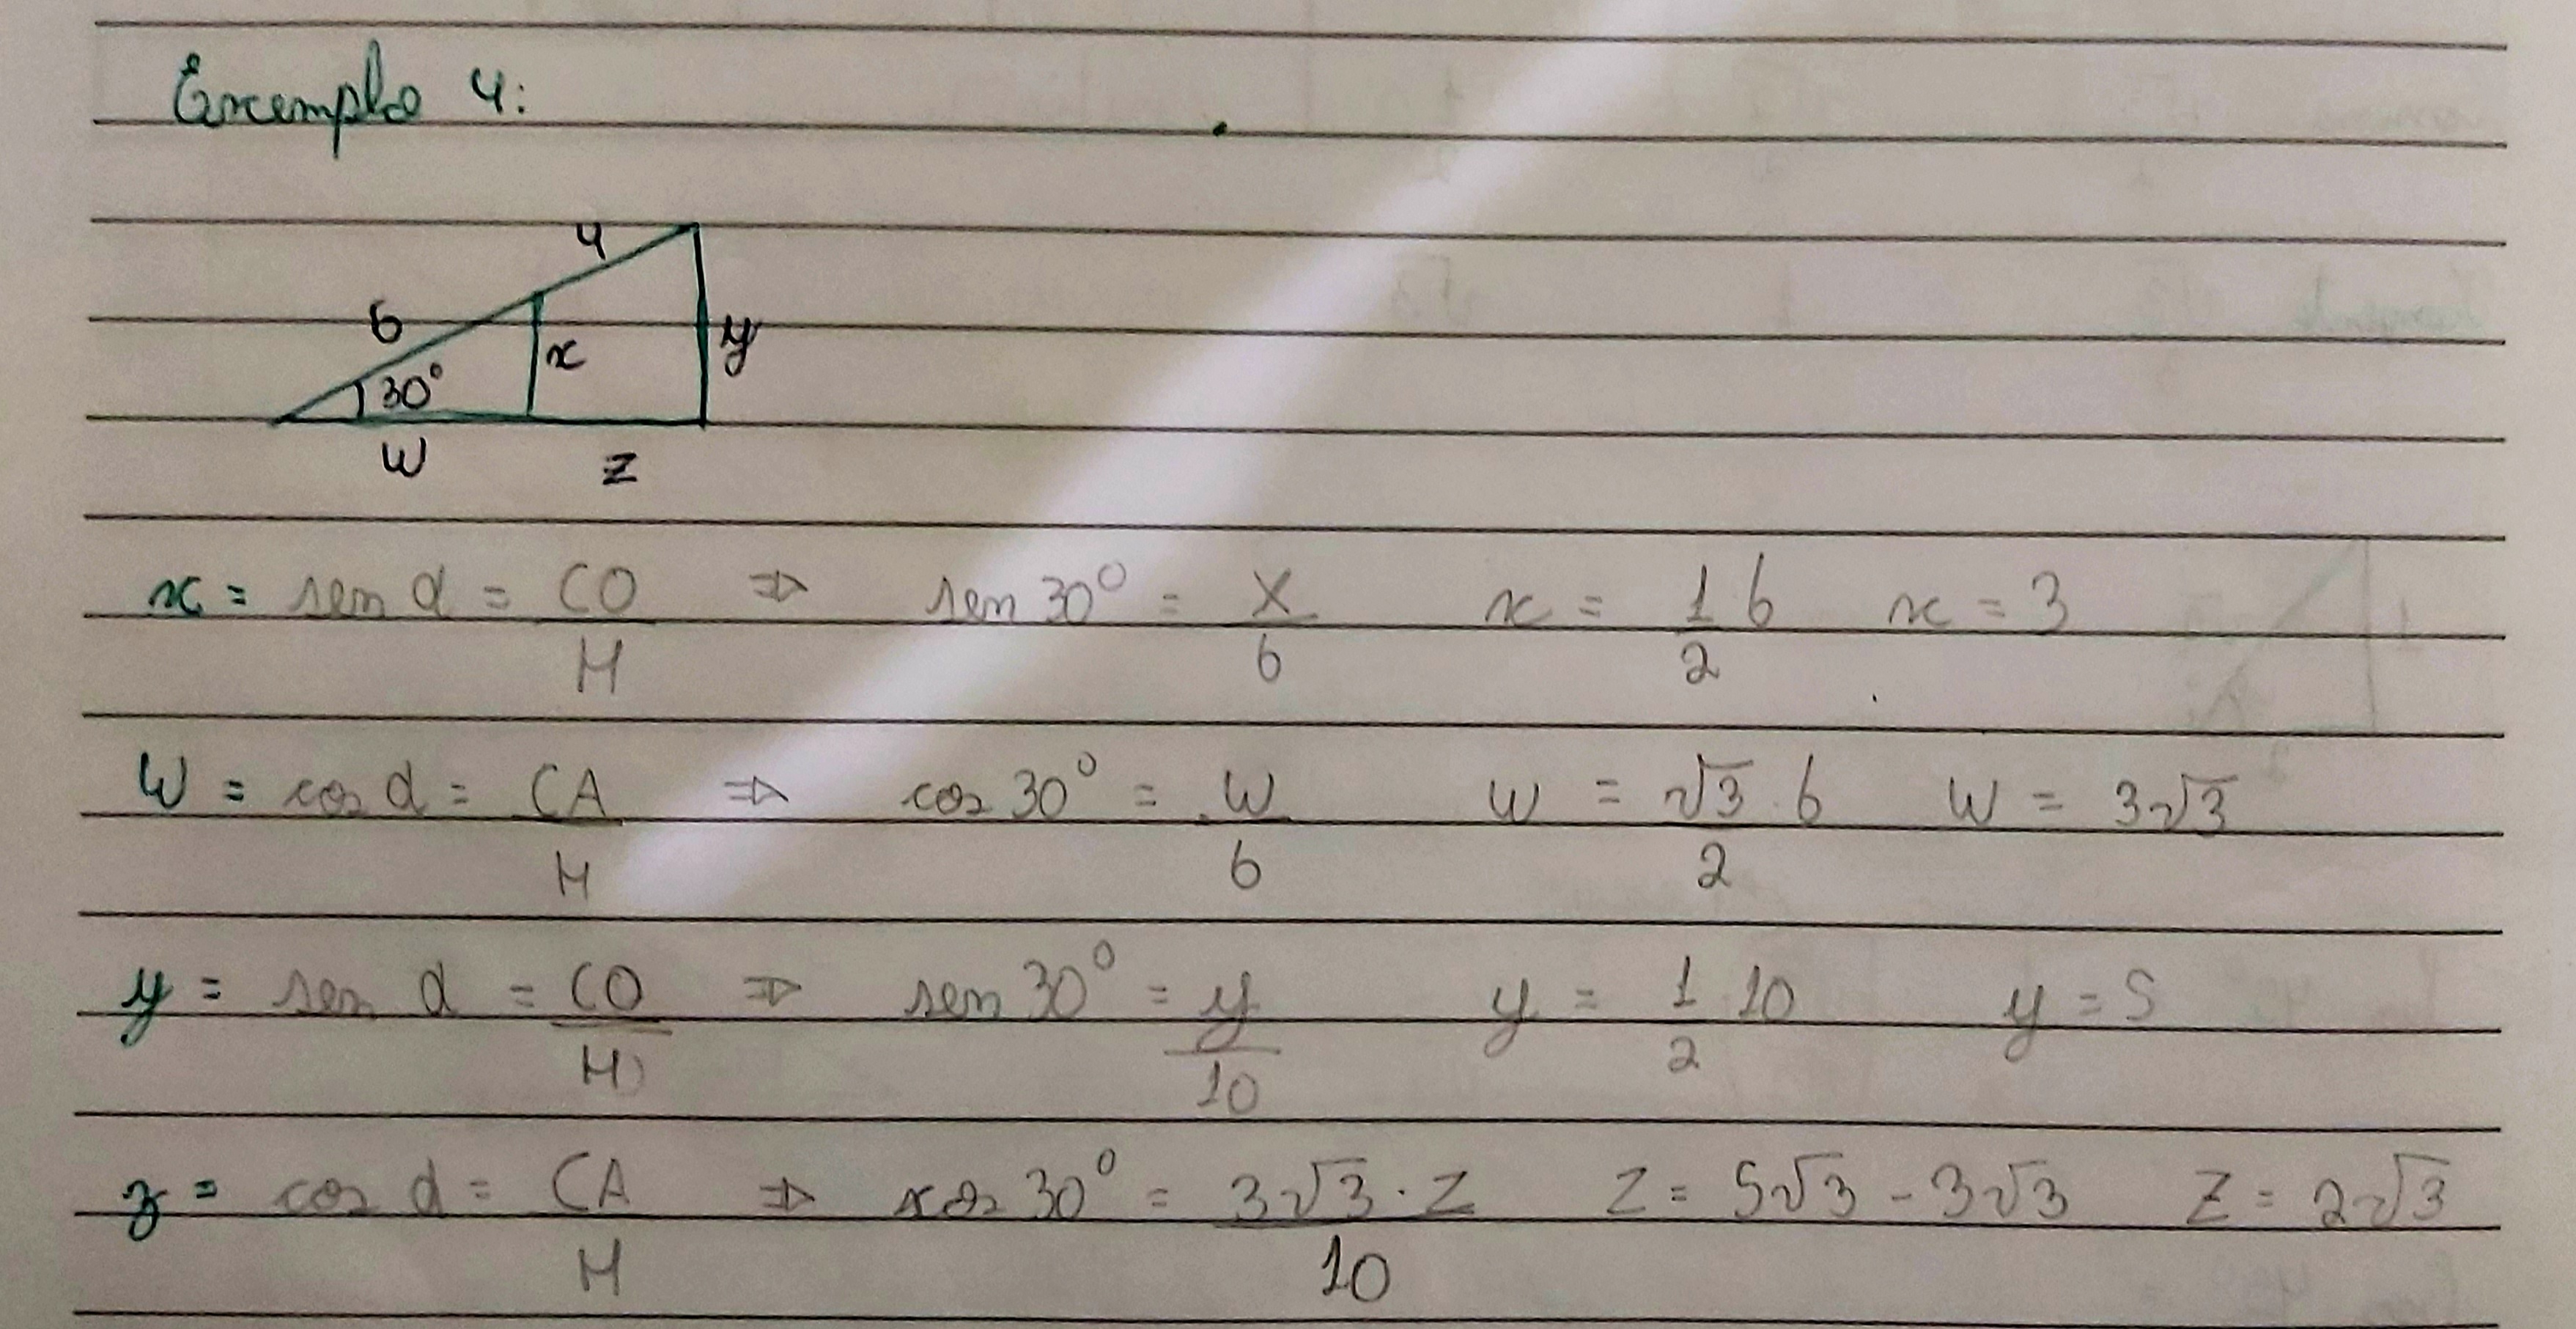 Exemplo 4:
4
6
x
y
30°
w z
x = sen α = CO/H ⇒ sen 30° = X/6 x = 1/2 6 x = 3
W = cos α = CA/H ⇒ cos 30° = W/6 W = √3/2 . 6 W = 3√3
y = sen α = CO/H ⇒ sen 30° = y/10 y = 1/2 10 y = 5
z = cos α = CA/H ⇒ cos 30° = 3√3 . Z/10 Z = 5√3 - 3√3 Z = 2√3